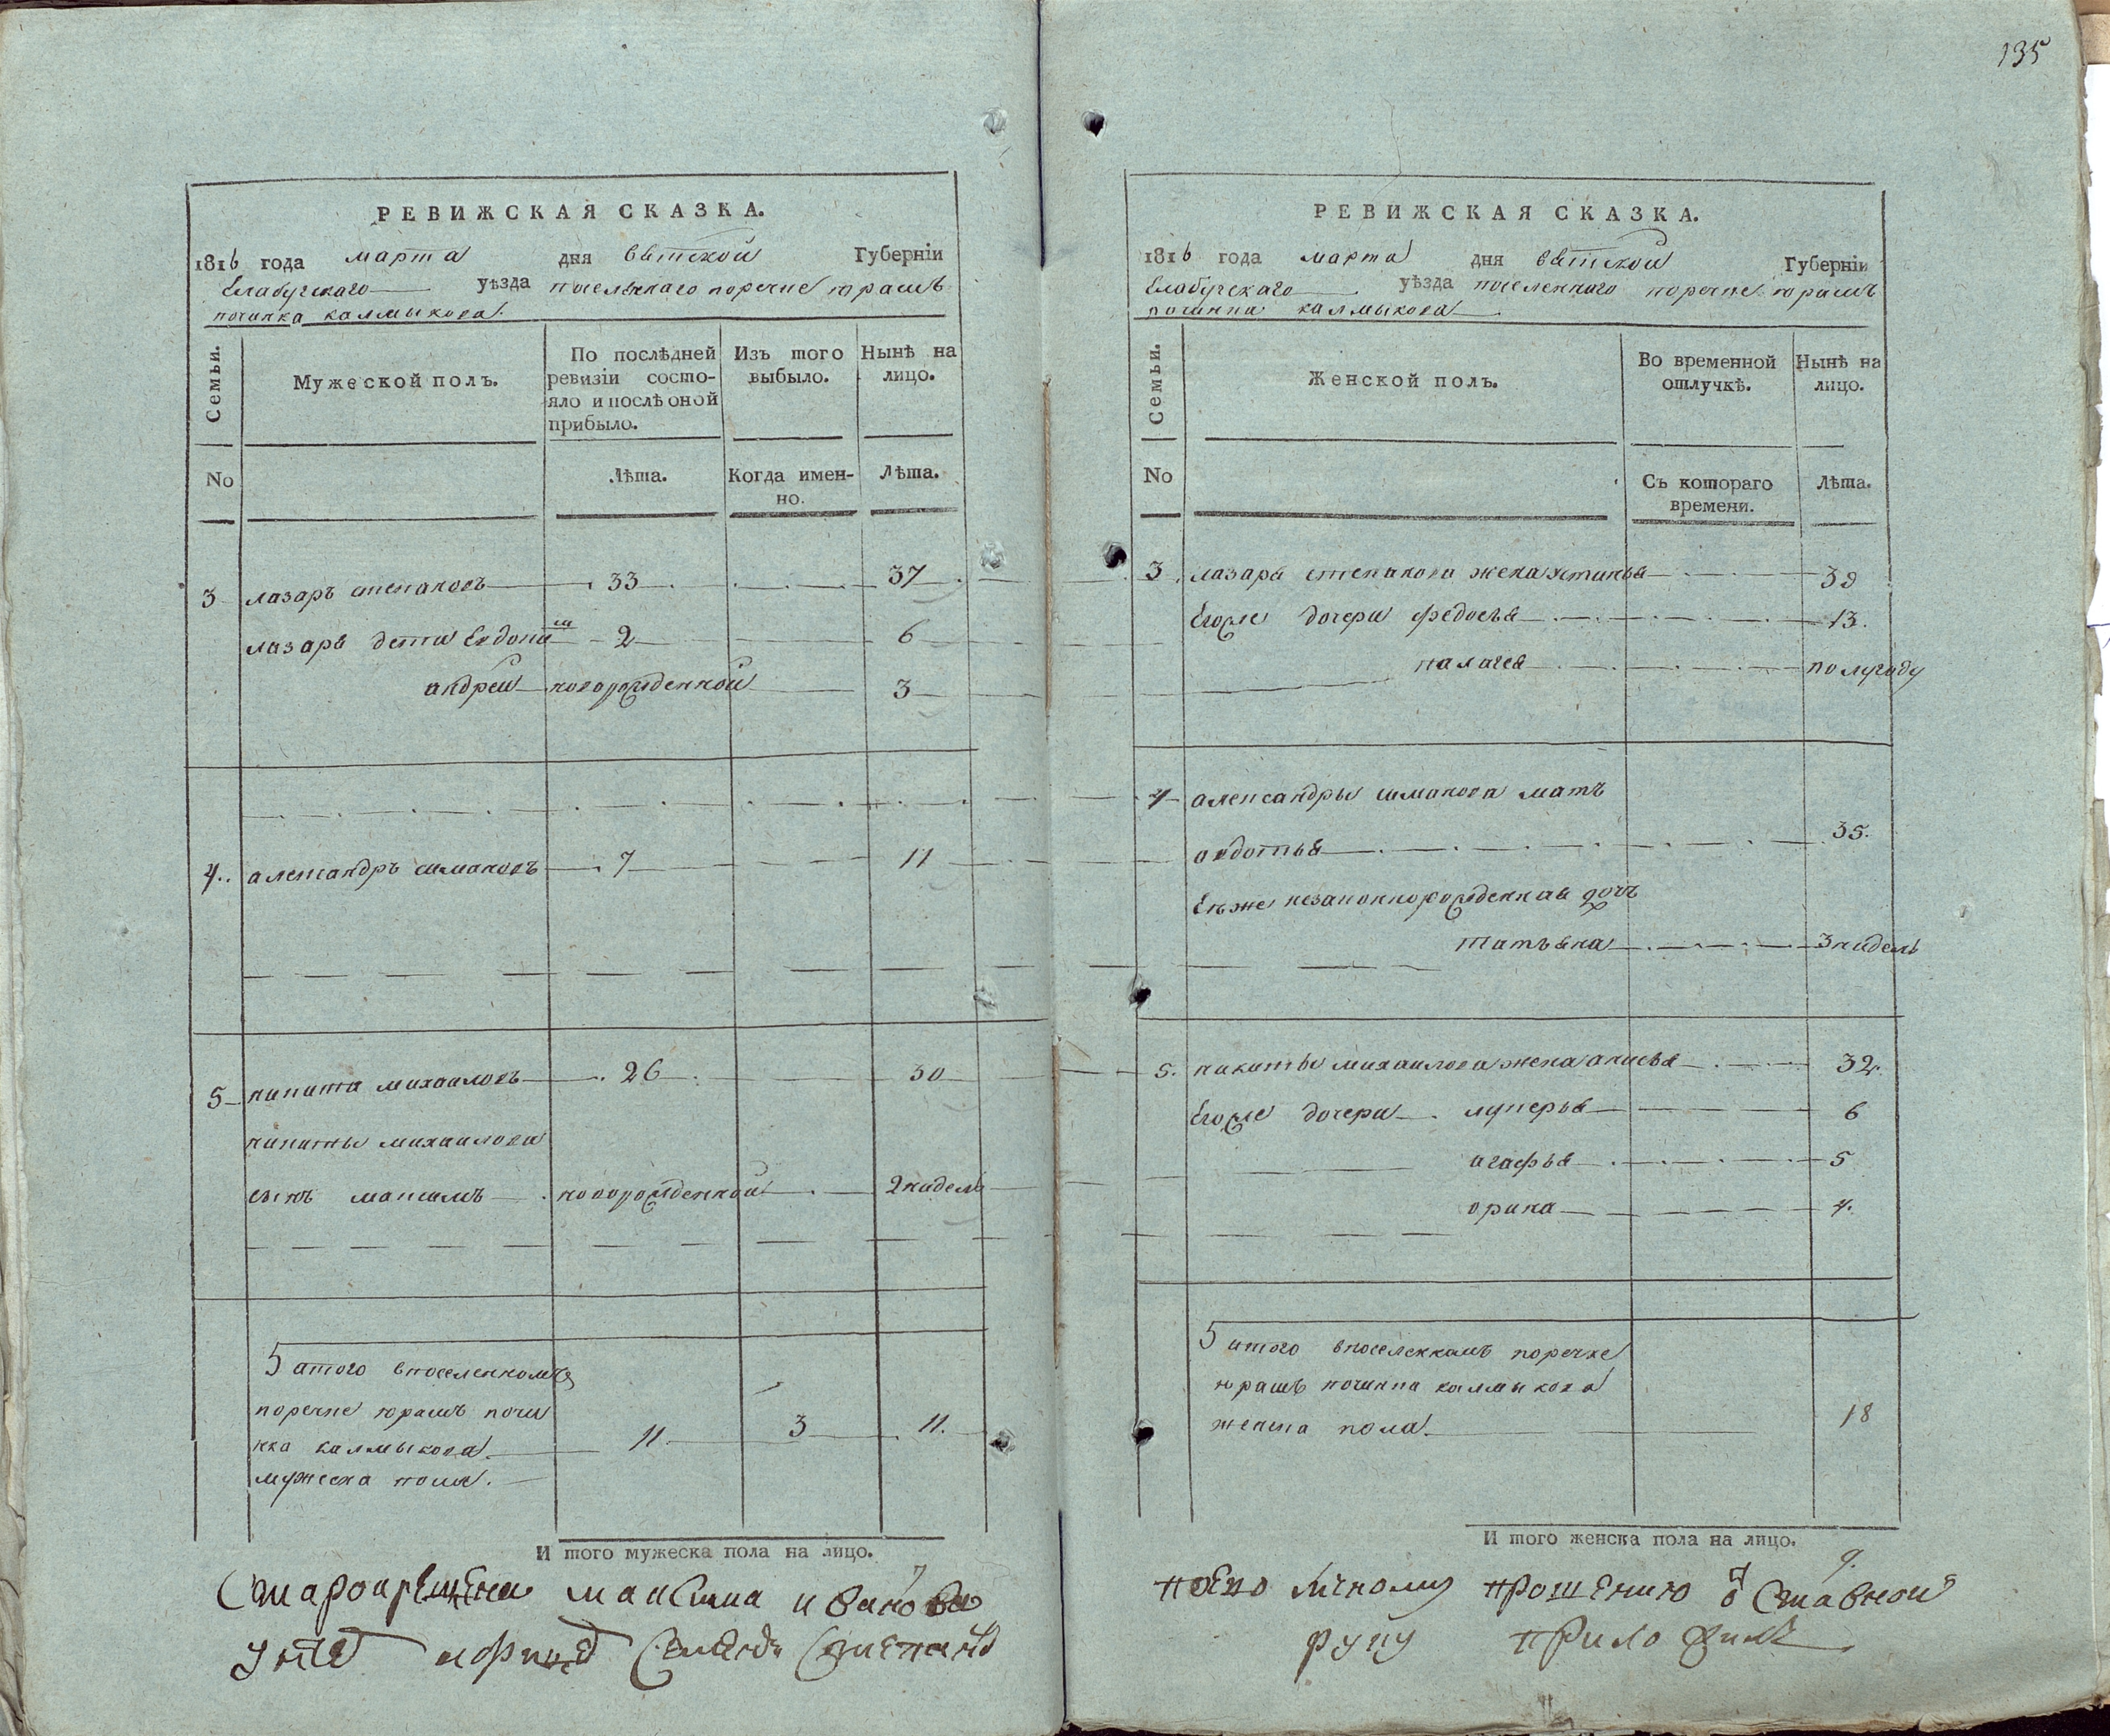 135
РЕВИЖСКАЯ СКАЗКА.
1816 года марта дня вятской Губерніи
Елабугскаго уѣзда поселеннаго поречке юрашъ
починка калмыкова.
Семьи.
Мужеской полъ.
По послѣдней ревизіи состо-
яло и послѣ оной
прибыло.
Изъ того
выбыло.
Нынѣ на
лицо.
No
Лѣта.
Когда имен-
но.
Лѣта.
3 лазарь степановъ 33 37
лазаря дети 2 6
андрей новорожденной 3
4. александръ шмаковъ 7 11
5 никита михаиловъ 26 30
никиты михаилова
сынъ максимъ новорожденной 2 нидели
5 итого впоселенномъ
поречке юрашъ почи
нка калмыкова
мужеска пола. 11. 3 11.
И того мужеска пола на лицо.
Старокрещена максима иванова
РЕВИЖСКАЯ СКАЗКА.
1816 года марта дня вятской Губерніи
Елабугскаго уѣзда поселенного поречке юрашъ
починка калмыкова.
Семьи.
Женской полъ.
Во временной
отлучкѣ.
Нынѣ на
лицо.
No
Съ котораго
времени.
Лѣта.
3. лазаря степанова жена устинья 39
Егоже дочери федосья 13.
палагея полугоду
4 александры шмакова мать
авдотья 35.
Ея же незаконнорожденная дочь
татьяна 3 нидели
5. никиты михаилова жена анисья 32.
Егоже дочери лукерья 6
агафья 5
орина 4.
5 итого впоселенномъ поречке
юрашъ починка калмыкова
женска пола. 18
И того женска пола на лицо.
поево личному прошению
руку приложилъ